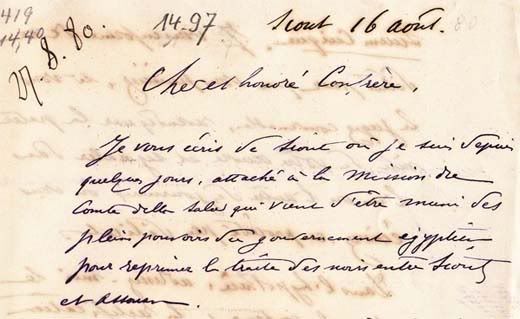 419
14,40
27.8.80.
14.97
Siout 16 août.
Cher et honoré Confrère,
Je vous écris de Siout où je suis depuis
quelques jours, attaché à la Mission du
Comte della Sala qui vient d'être muni des
pleins pouvoirs du gouvernement égyptien
pour reprimer la traite des noirs entre Siout
et Assouan.